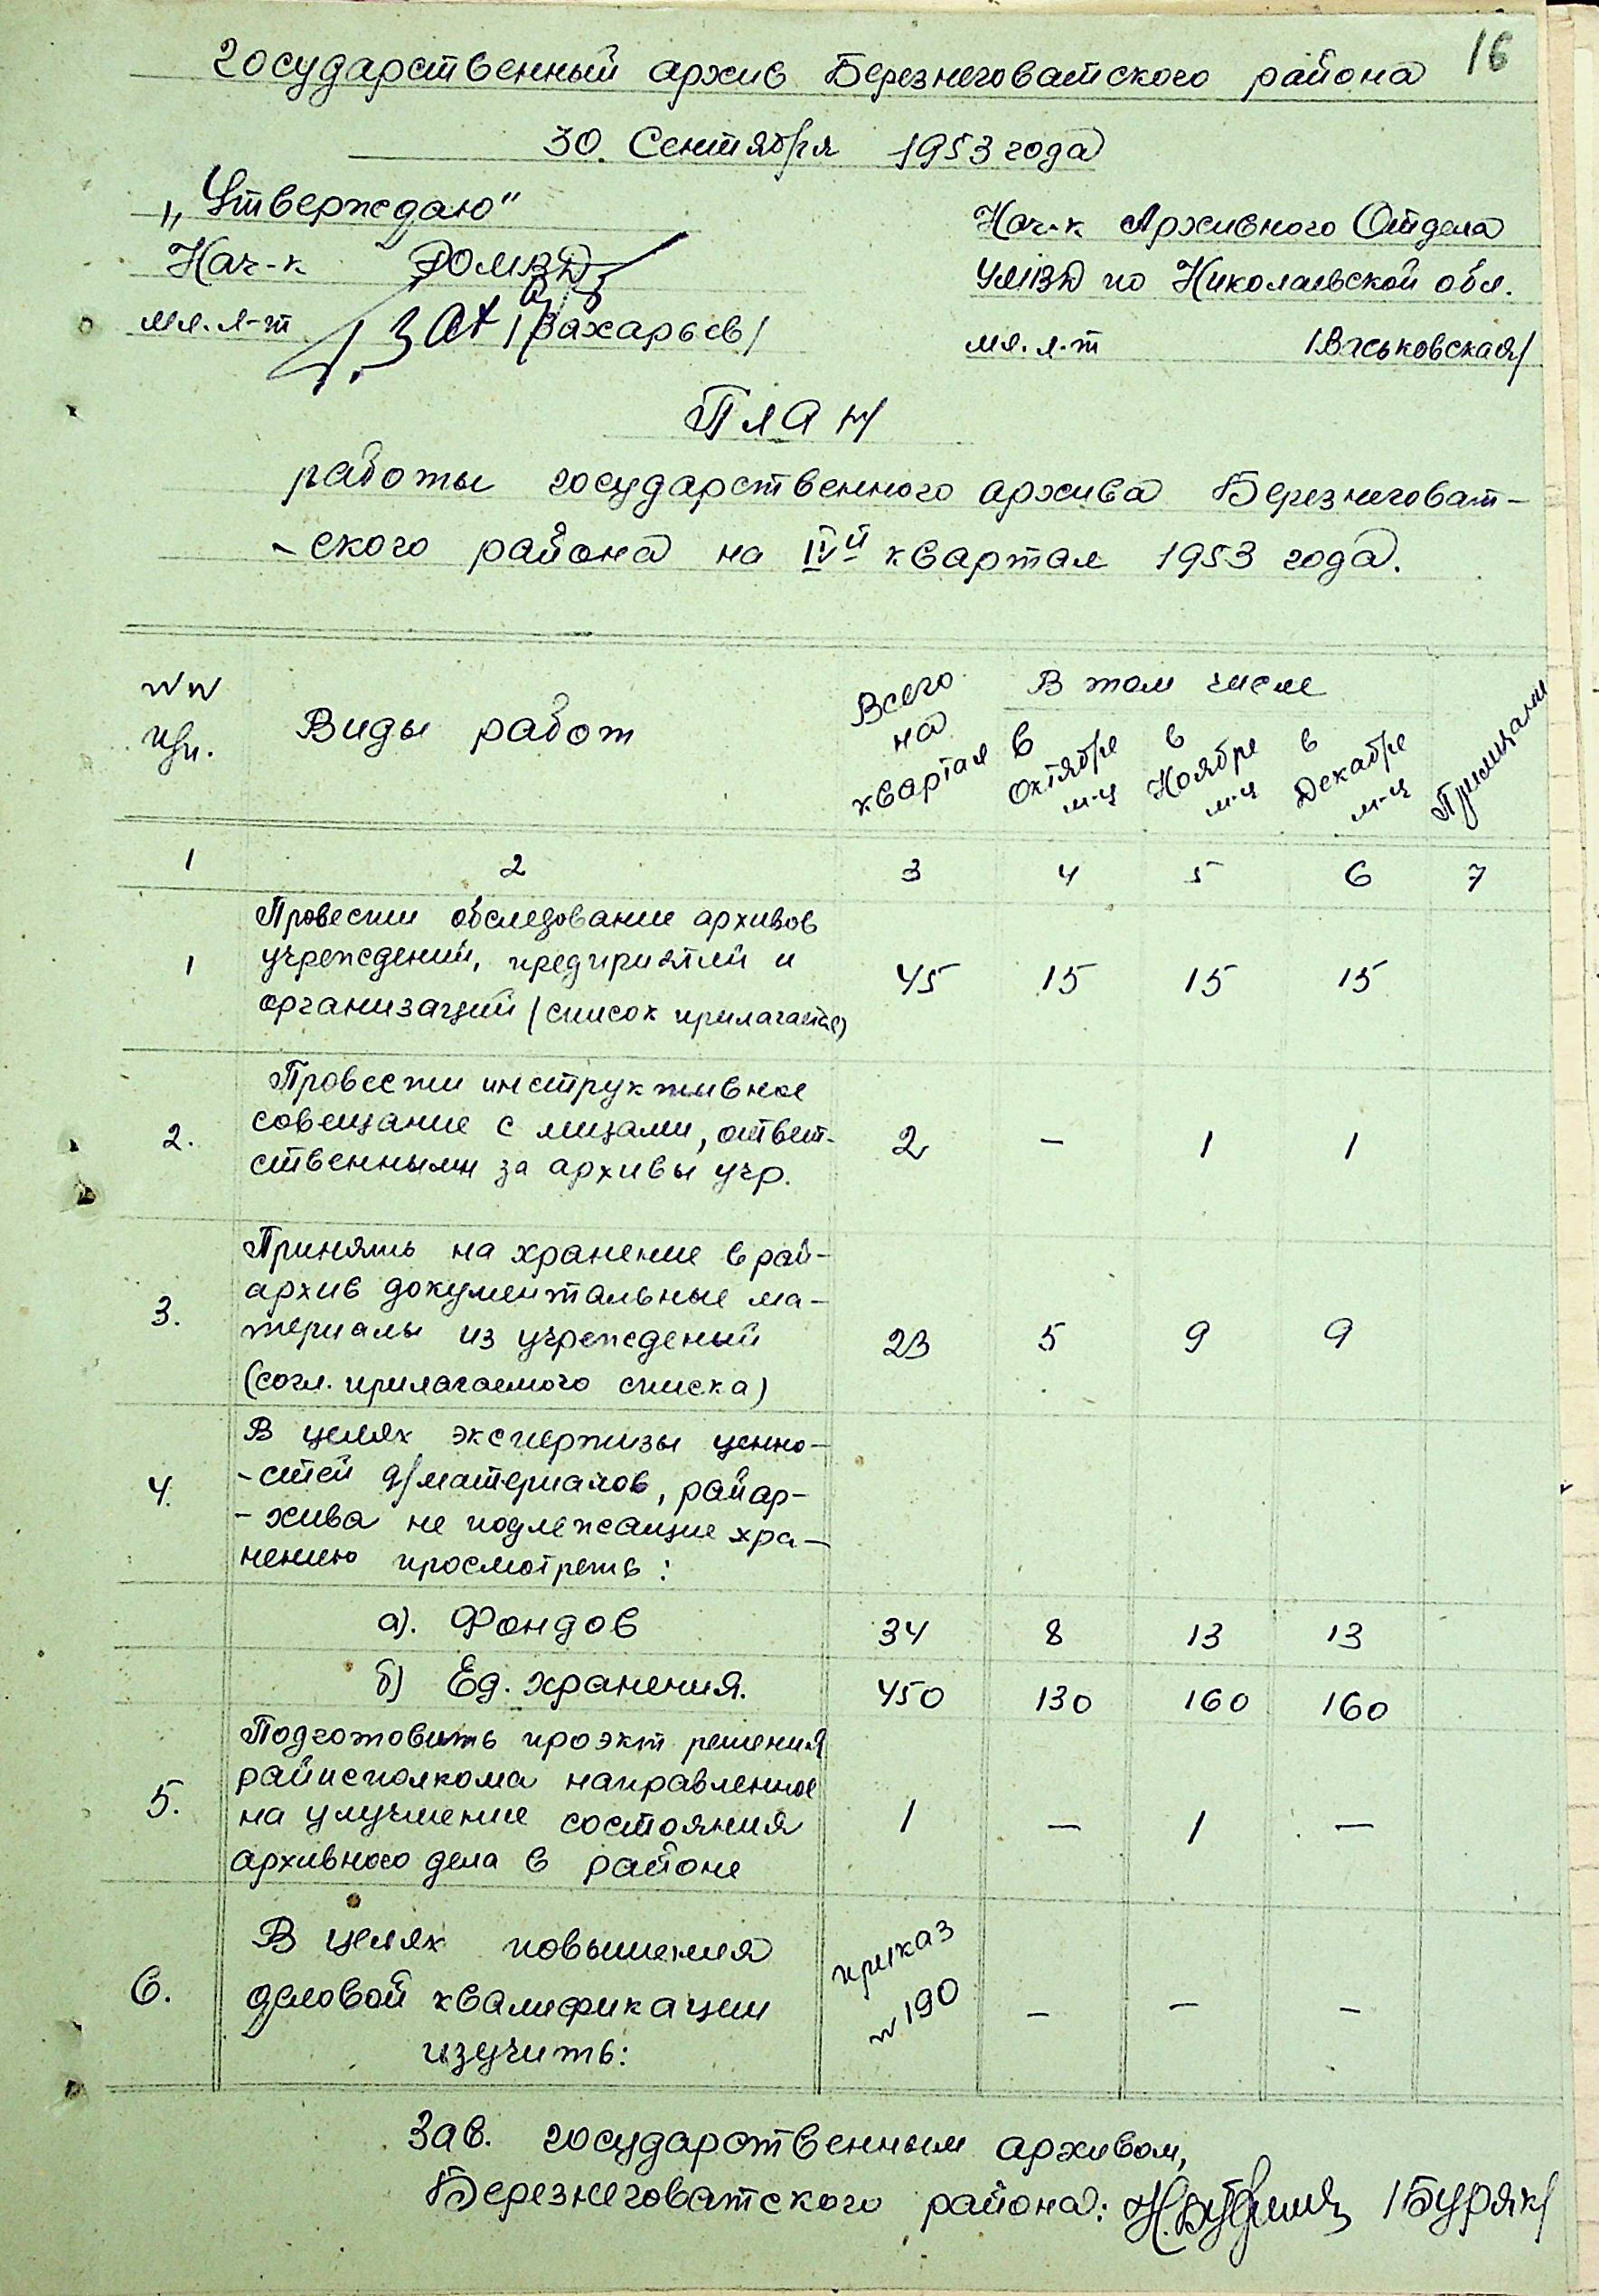 16
Государственный архив Березнеговатского района
30. Сентября 1953 года
„Утверждаю"
Нач-к РОМВД
мл. л-т /Захарьев/
Нач-к Архивного Отдела
УМВД по Николаевской обл.
мл. л-т /Васьковская/
План
работы государственного архива Березнеговат-
-ского района на IVй квартал 1953 года.
NN п/п. | Виды работ | Всего на квартал | В том числе | Примечание
в Октябре м-ц | в Ноябре м-ц | в Декабре м-ц
1 | 2 | 3 | 4 | 5 | 6 | 7
Провести обследование архивов
1 учреждений, предприятий и 45 15 15 15
организаций /список прилагается)
Провести инструктивное
2. совещание с лицами, ответ- 2 – 1 1
ственными за архивы учр.
Принять на хранение в рай-
архив документальные ма-
3. териалы из учреждений 23 5 9 9
(согл. прилагаемого списка)
В целях экспертизы ценно-
4. -стей д/материалов, райар-
-хива не подлежащие хра-
нению просмотреть:
а). Фондов 34 8 13 13
б) Ед. хранения. 450 130 160 160
Подготовить проэкт решения
райисполкома направленное
5. на улучшение состояния 1 – 1 –
архивного дела в районе
В целях повышения приказ
6. деловой квалификации N 190 – – –
изучить:
Зав. государственным архивом,
Березнеговатского района: /Буряк/